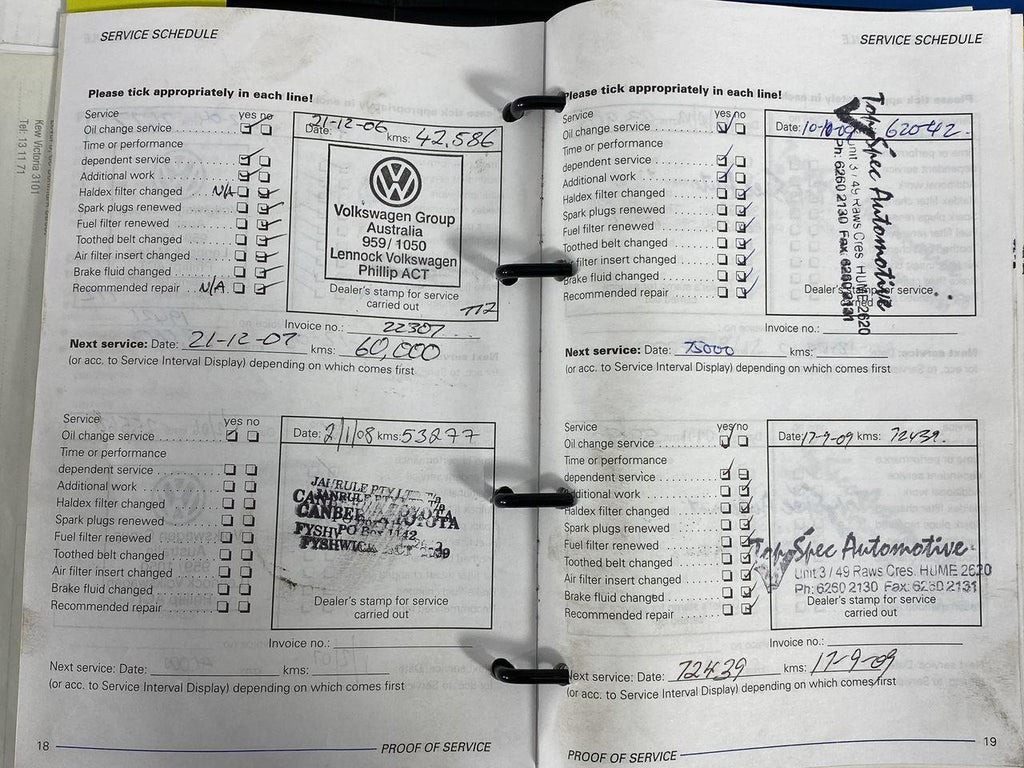 SERVICE SCHEDULE
Please tick appropriately in each line!
Service yes no
Oil change service
Time or performance
dependent service
Additional work
Haldex filter changed N/A
Spark plugs renewed
Fuel filter renewed
Toothed belt changed
Air filter insert changed
Brake fluid changed
Recommended repair N/A
Date: 21-12-06 kms: 42,586
Volkswagen Group
Australia
959/ 1050
Lennock Volkswagen
Phillip ACT
Dealer's stamp for service
carried out
Invoice no.: 22307
Next service: Date: 21-12-07 kms: 60,000
(or acc. to Service Interval Display) depending on which comes first
Service yes no
Oil change service
Time or performance
dependent service
Additional work
Haldex filter changed
Spark plugs renewed
Fuel filter renewed
Toothed belt changed
Air filter insert changed
Brake fluid changed
Recommended repair
Date: 2/1/08 kms: 53277
JAHRULE PTY
CANBERRA TOYOTA
PO Box 1142
FYSHWICK ACT
Dealer's stamp for service
carried out
Invoice no.:
Next service: Date: kms:
(or acc. to Service Interval Display) depending on which comes first
18 PROOF OF SERVICE
SERVICE SCHEDULE
Please tick appropriately in each line!
Service yes no
Oil change service
Time or performance
dependent service
Additional work
Haldex filter changed
Spark plugs renewed
Fuel filter renewed
Toothed belt changed
Air filter insert changed
Brake fluid changed
Recommended repair
Date: 62042
TopSpec Automotive
Unit 3 / 49 Raws Cres. HUME 2620
Ph: 6260 2130 Fax: 6260 2131
Dealer's stamp for service
Invoice no.:
Next service: Date: 75000 kms:
(or acc. to Service Interval Display) depending on which comes first
Service yes no
Oil change service
Time or performance
dependent service
Additional work
Haldex filter changed
Spark plugs renewed
Fuel filter renewed
Toothed belt changed
Air filter insert changed
Brake fluid changed
Recommended repair
Date: 17-9-09 kms: 72439
TopSpec Automotive
Unit 3 / 49 Raws Cres. HUME 2620
Ph: 6260 2130 Fax: 6260 2131
Dealer's stamp for service
carried out
Invoice no.:
Next service: Date: 72439 kms: 17-9-09
(or acc. to Service Interval Display) depending on which comes first
PROOF OF SERVICE 19
Kew Victoria 3101
Tel: 13 11 71